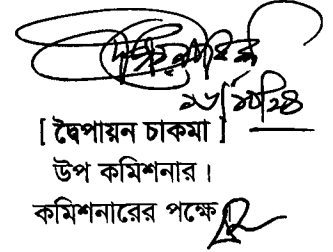 ১৬/১০/২৪
[ দ্বৈপায়ন চাকমা ]
উপ কমিশনার।
কমিশনারের পক্ষে